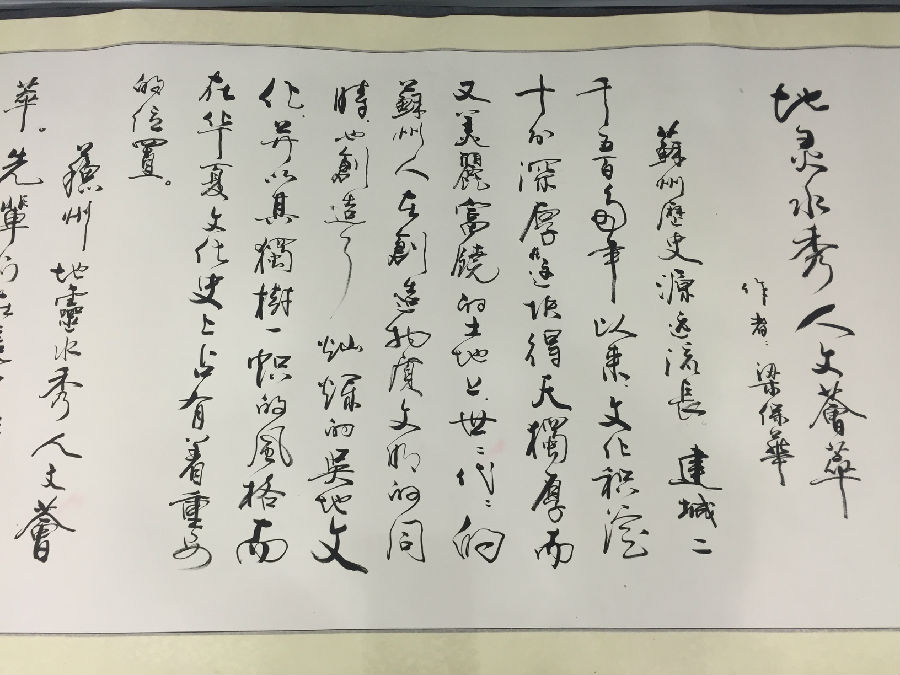 地灵水秀人文薈萃
作者：梁保華
蘇州歷史源远流長建城二
千五百多年以来，文化积淀
十分深厚。这块得天獨厚而
又美麗富饒的土地上，世世代代的
蘇州人在創造物质文明的同
時，也創造了灿爛的吴地文
化，并以其獨樹一帜的風格而
在华夏文化史上占有着重要
的位置。
蘇州地靈水秀人文薈
萃。先輩们在這